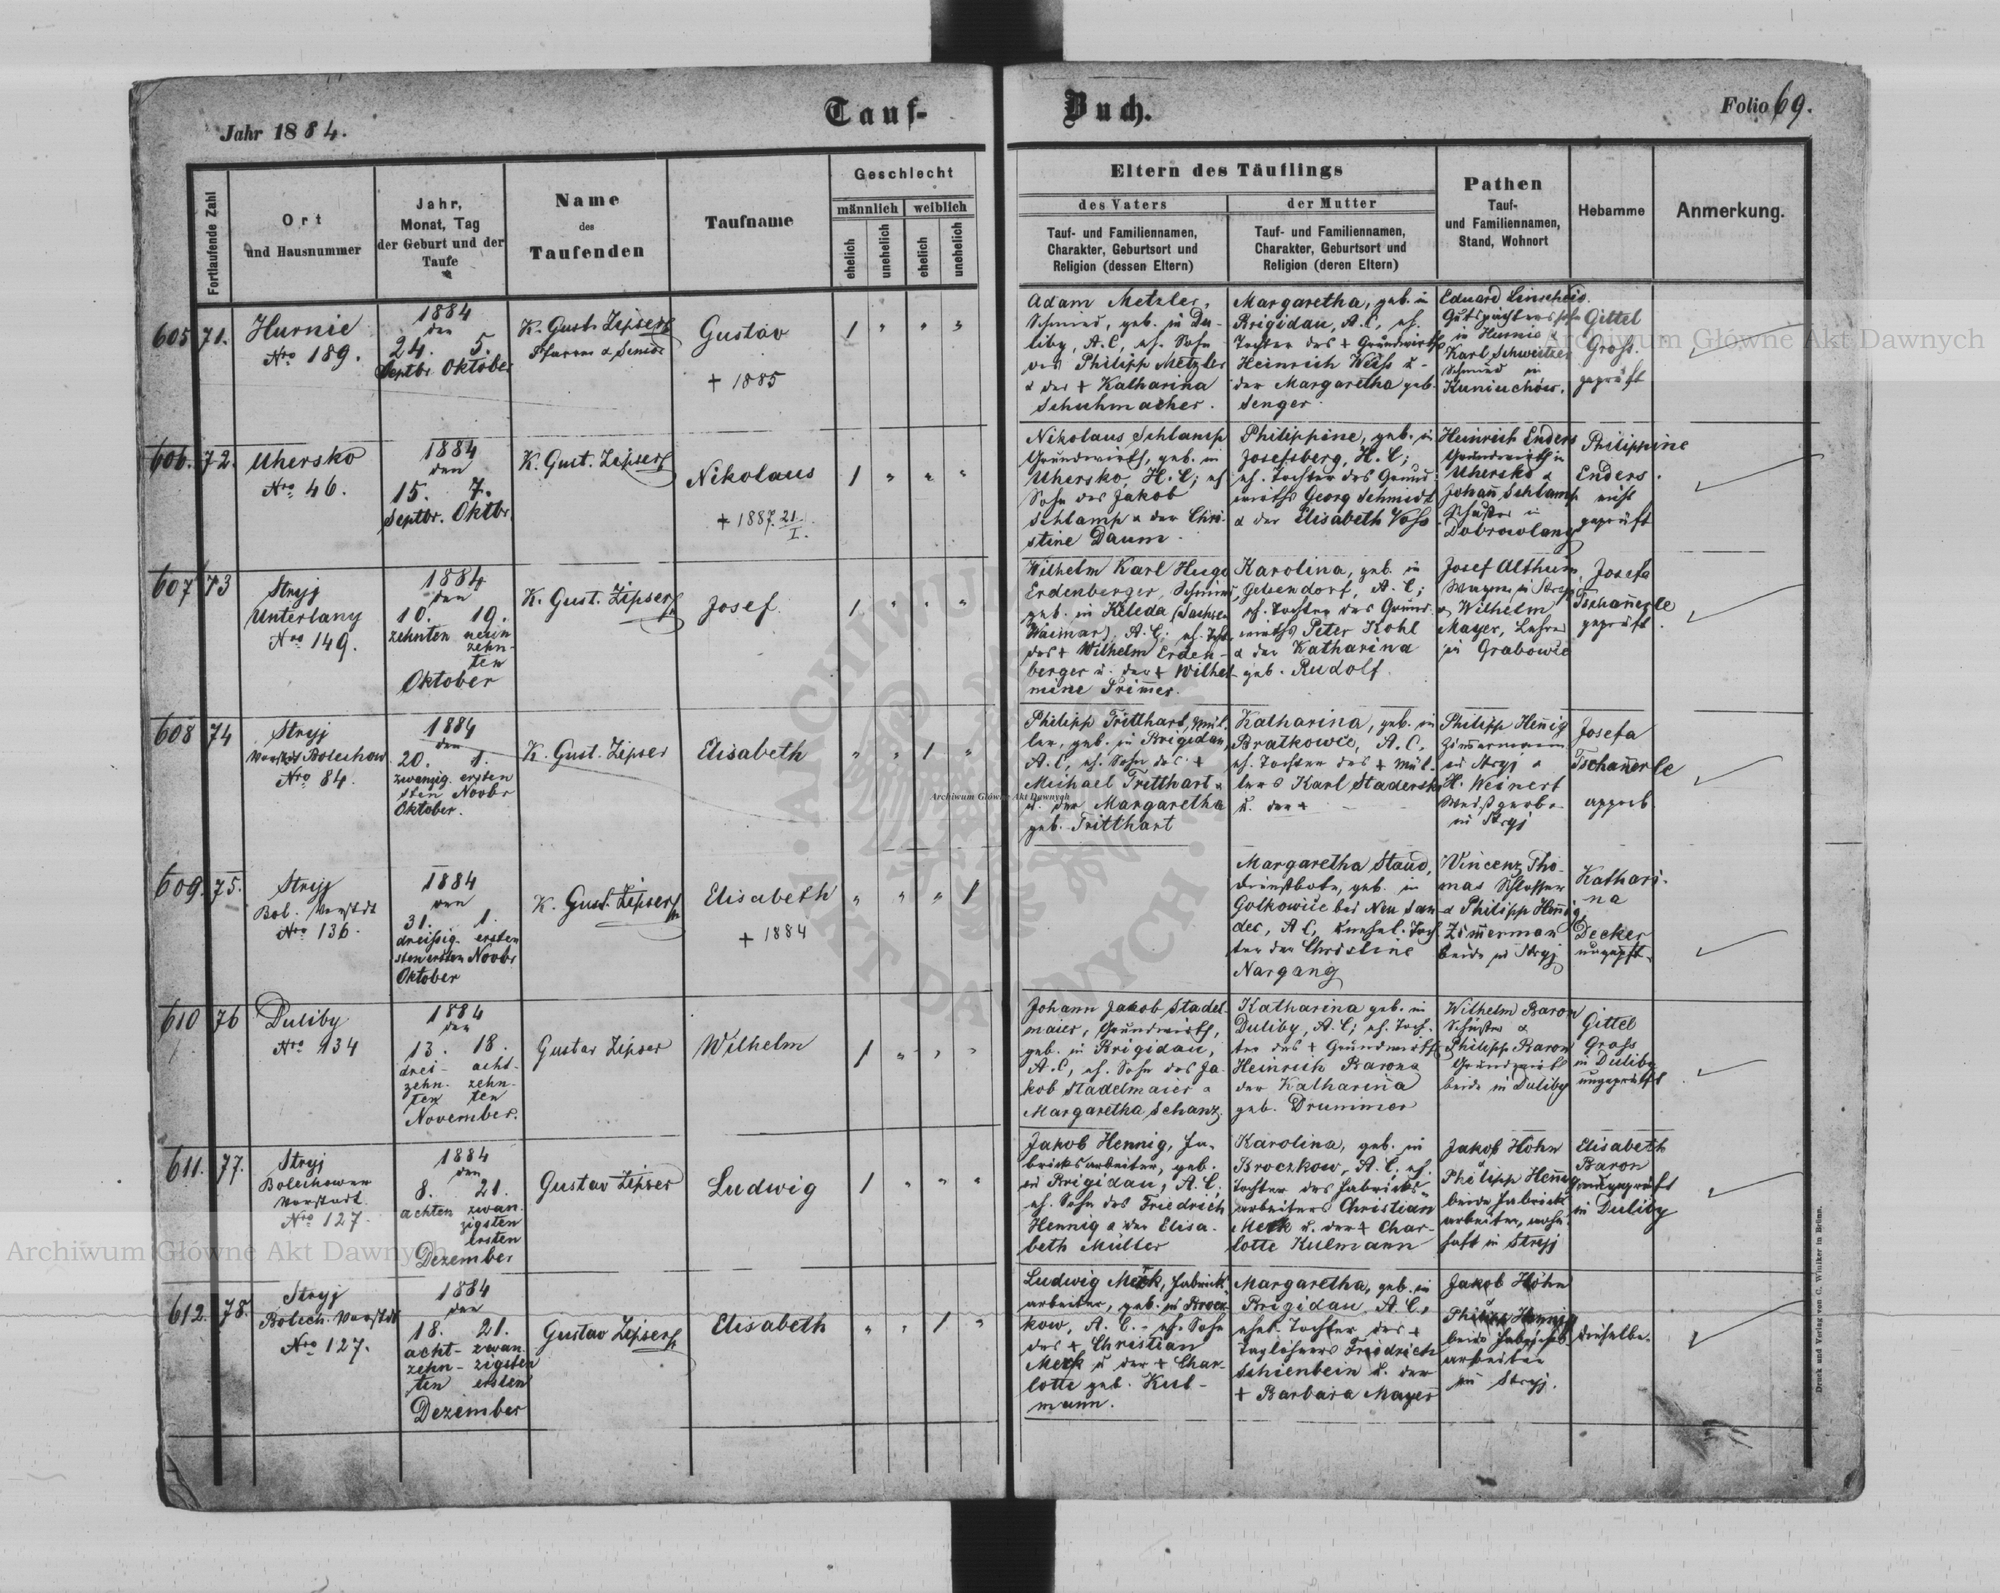 Jahr 1884.
Tauf-
Buch.
Folio 69.
Fortlaufende Zahl
Ort
und Hausnummer
Jahr,
Monat, Tag
der Geburt und der
Taufe
Name
des
Taufenden
Taufname
Geschlecht
männlich
weiblich
ehelich
unehelich
ehelich
unehelich
Eltern des Täuflings
des Vaters
Tauf- und Familiennamen,
Charakter, Geburtsort und
Religion (dessen Eltern)
der Mutter
Tauf- und Familiennamen,
Charakter, Geburtsort und
Religion (deren Eltern)
Pathen
Tauf-
und Familiennamen,
Stand, Wohnort
Hebamme
Anmerkung.
605 71.
Hurnie
Nro 189.
1884
den
24. 5.
Septbr. Oktober
K. Gust. Zipser
Pfarrer & Senior
Gustav
+ 1885
1 " " "
Adam Metzler,
Schmied, geb. in Du-
liby, A.C, eh. Sohn
des Philipp Metzler
& der + Katharina
Schuhmacher.
Margaretha, geb. in
Brigidau, A.C, eh.
Tochter des + Grundwirths
Heinrich Weiss u.
der Margaretha geb.
Senger.
Eduard Linscheid.
Gutspächterssohn
in Hurnie &
Karl Schweitzer
Schmied in
Kuniuchów.
Gittel
Gross.
geprüft
606. 72.
Uhersko
Nro 46.
1884
den
15. 7.
Septbr. Oktbr.
K. Gust. Zipser
Nikolaus
+ 1887. 21/I.
1 " " "
Nikolaus Schlamp
Grundwirth, geb. in
Uhersko, H.C; eh
Sohn des Jakob
Schlamp & der Chri-
stine Daum.
Philippine, geb. in
Josefsberg, H.C;
eh. Tochter des Grund-
wirths Georg Schmidt
& der Elisabeth Voss
Heinrich Enders
Grundwirth in
Uhersko &
Johann Schlamp
Schuster in
Dobrowlany
Philippine
Enders.
nicht
geprüft
607 73
Stryj
Unterlany
Nro 149.
1884
den
10. 19.
zehnten neun
zehn-
ten
Oktober
K. Gust. Zipser
Josef
1 " " "
Wilhelm Karl Hugo
Erdenberger, Schmied,
geb. in Kelbda (Sachsen
Waimar), A.C; eh. Sohn
des + Wilhelm Erden-
berger u. der + Wilhel-
mine Trimer.
Karolina, geb. in
Gelsendorf, A.C;
eh. Tochter des Grund-
wirths Peter Kohl
& der Katharina
geb. Rudolf.
Josef Althum,
Wagner in Stryj
& Wilhelm
Mayer, Lehrer
in Grabowce
Josefa
Tschannerle
geprüft.
608 74
Stryj
Vorstdt Bolechow
Nro 84.
1884
den
20. 1.
zwanzig- ersten
sten Novbr
Oktober.
K. Gust. Zipser
Elisabeth
" " 1 "
Philipp Tritthart, Mül-
ler, geb. in Brigidau,
A.C, eh. Sohn des +
Michael Tritthart &
u. der Margaretha
geb. Tritthart
Katharina, geb. in
Bratkowce, A.C.
eh. Tochter des + Mül-
lers Karl Staderski
u. der +
Philipp Hennig
Zimmermann
in Stryj &
H. Weinert
Weissgerber
in Stryj
Josefa
Tschannerle
approb
609. 75.
Stryj
Bol. Vorstdt
Nro 136.
1884
den
31. 1.
dreißig- ersten
sten ersten Novbr
Oktober
K. Gust. Zipser
Elisabeth
+ 1884
" " " 1
Margaretha Staud,
Dienstbote, geb. in
Golkowice bei Neu San-
dec, A.C, unehel. Toch-
ter der Christine
Nargang
Vincenz Tho-
mas Schlosser
& Philipp Hennig,
Zimmerman
beide in Stryj
Kathari-
na
Decker
ungeprft.
610 76
Duliby
Nro 134
1884
den
13. 18.
drei- acht-
zehn- zehn-
ten ten
November.
Gustav Zipser
Wilhelm
1 " " "
Johann Jakob Stadel-
maier, Grundwirth,
geb. in Brigidau,
A.C, eh. Sohn des Ja-
kob Stadelmaier &
Margaretha Schanz.
Katharina geb. in
Duliby, A.C; eh. Toch-
ter des + Grundwirths
Heinrich Barona
der Katharina
geb. Drummer
Wilhelm Baron
Schuster &
Philipp Baron
Grundwirth
beide in Duliby
Gittel
Gross
in Duliby
ungeprüft
611. 77.
Stryj
Bolechower
Vorstadt.
Nro 127.
1884
den
8. 21.
achten zwan-
zigsten
ersten
Dezember
Gustav Zipser
Ludwig
1 " " "
Jakob Hennig, Fa-
briksarbeiter, geb.
in Brigidau, A.C,
eh. Sohn des Friedrich
Hennig & der Elisa-
beth Müller
Karolina, geb. in
Broczkow, A.C. eh.
Tochter des Fabriks-
arbeiters Christian
Merk u. der + Char-
lotte Kulmann
Jakob Höhn
&
Philipp Hennig
beide Fabriks-
arbeiter, wohn-
haft in Stryj
Elisabeth
Baron
ungeprüft
in Duliby
612. 78.
Stryj
Bolech. Vorstdt
Nro 127.
1884
den
18. 21.
acht- zwan-
zehn- zigsten
ten ersten
Dezember
Gustav Zipser
Elisabeth
" " 1 "
Ludwig Merk, Fabriks-
arbeiter, geb. in Brocz-
kow, A.C. - eh. Sohn
des + Christian
Merk u der + Char-
lotte geb. Kul-
mann.
Margaretha, geb. in
Brigidau, A.C,
ehel. Tochter des +
Taglöhners Friedrich
Schienbein u. der
+ Barbara Mayer
Jakob Höhn
&
Philipp Hennig
beide Fabriks-
arbeiter
in Stryj.
dieselbe.
Druck und Verlag von C. Winiker in Brünn.
Archiwum Główne Akt Dawnych
Archiwum Główne Akt Dawnych
Archiwum Główne Akt Dawnych
ARCHIWUM
AKT DAWNYCH